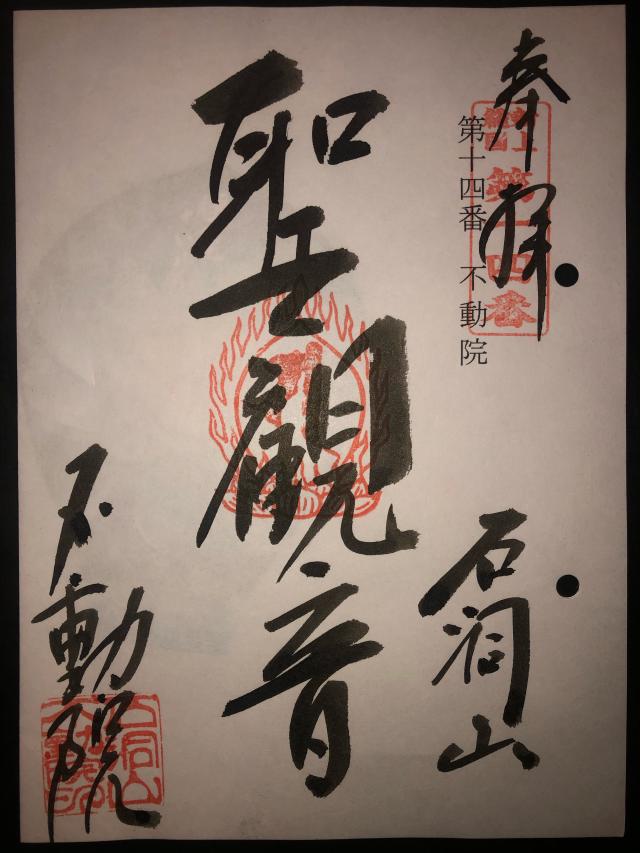 奉拝
第十四番 不動院
石洞山
聖観音
不動院